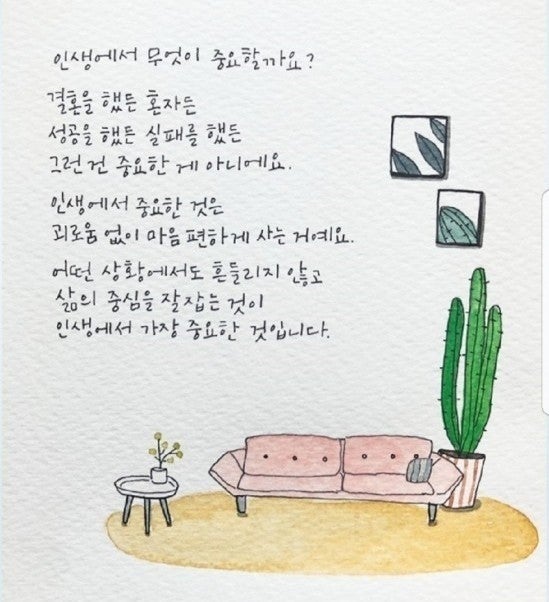 인생에서 무엇이 중요할까요?
결혼을 했든 혼자든
성공을 했든 실패를 했든
그런 건 중요한 게 아니에요.
인생에서 중요한 것은
괴로움 없이 마음 편하게 사는 거예요.
어떤 상황에서도 흔들리지 않고
삶의 중심을 잘 잡는 것이
인생에서 가장 중요한 것입니다.